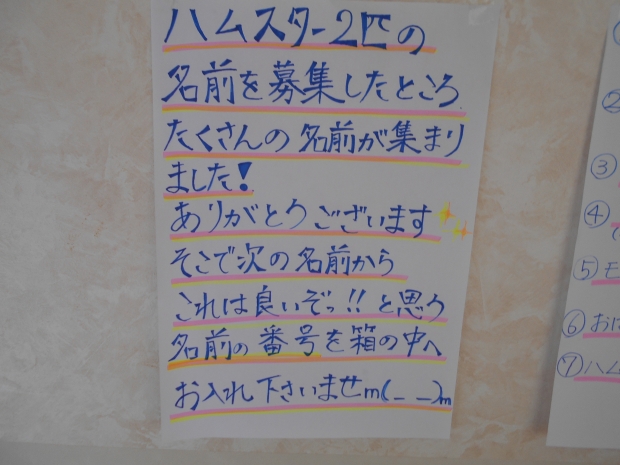 ハムスター2匹の
名前を募集したところ
たくさんの名前が集まり
ました!
ありがとうございます
そこで次の名前から
これは良いぞっ!!と思う
名前の番号を箱の中へ
お入れ下さいませm(_ _)m
②
③
④
⑤モ
⑥お
⑦ハム